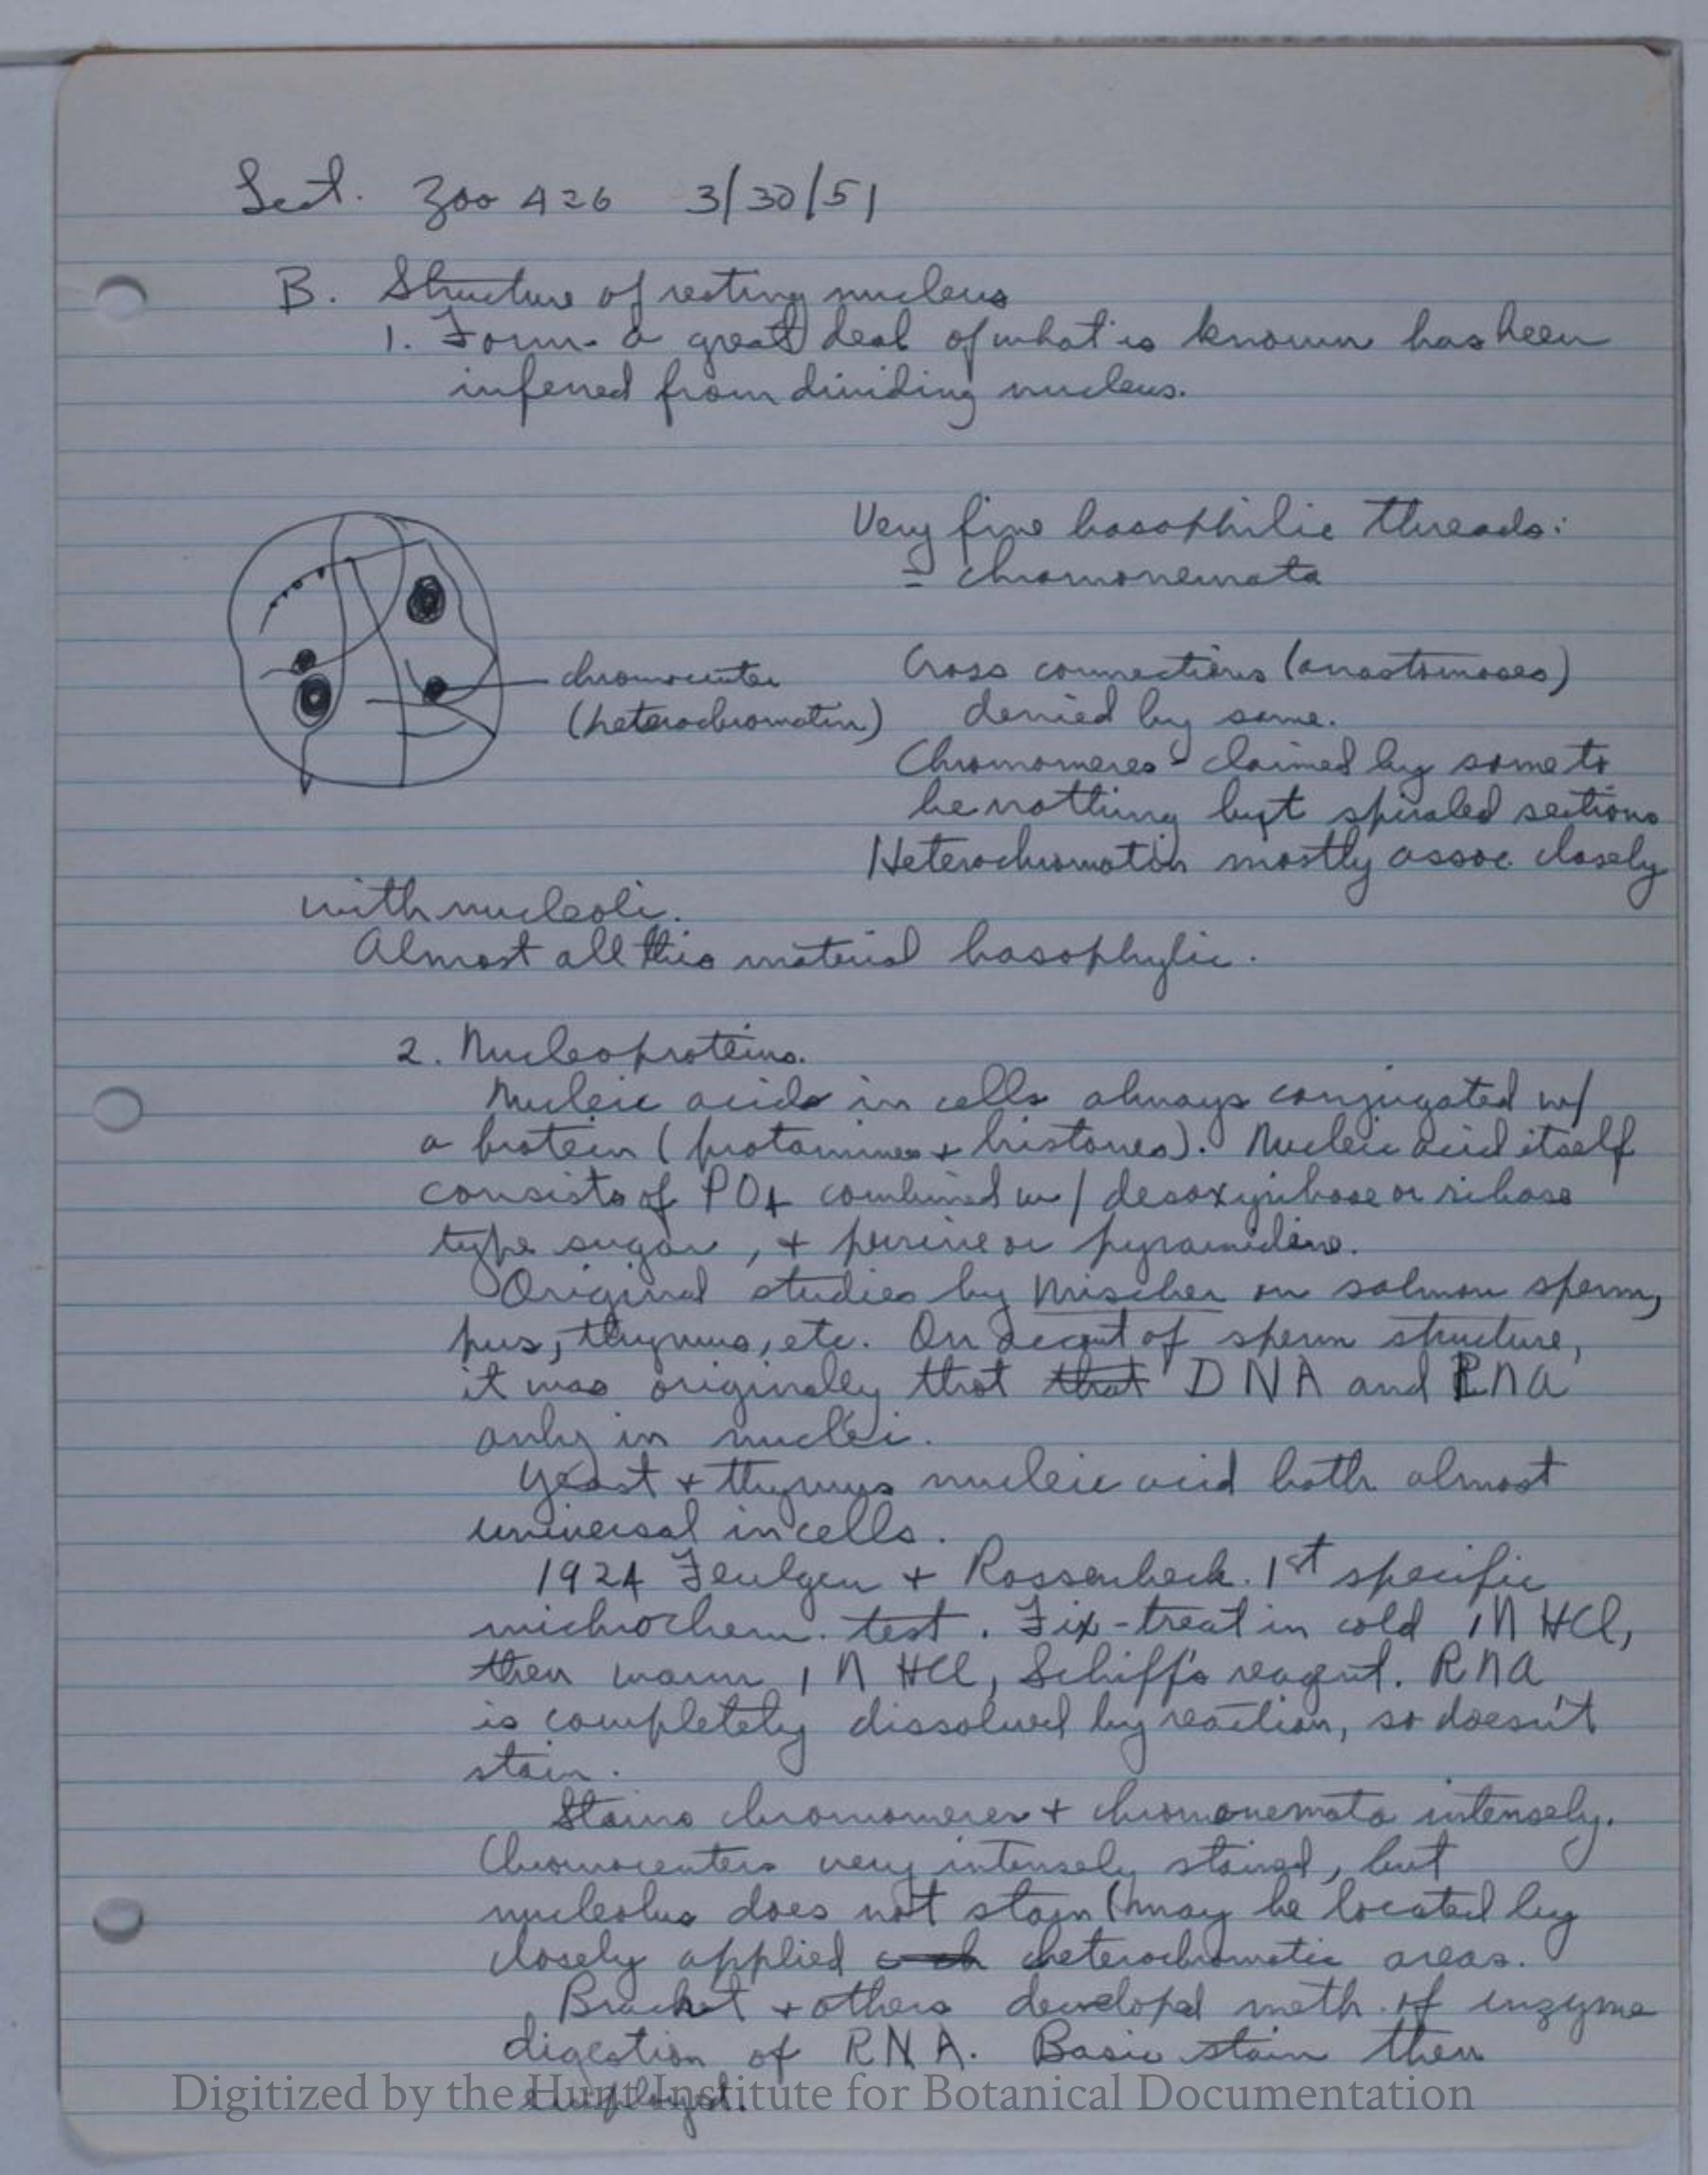 Lect. Zoo 426 3/30/51
B. Structure of resting nucleus
1. Form - a great deal of what is known has been
inferred from dividing nucleus.
Very fine basophilic threads:
= chromonemata
chromocenter
(heterochromatin)
Cross connections (anastomoses)
denied by some.
Chromomeres claimed by some to
be nothing but spiraled sections
Heterochromatin mostly assoc. closely
with nucleoli.
Almost all this material basophylic.
2. Nucleoproteins.
Nucleic acids in cells always conjugated w/
a protein (protamines + histones). Nucleic acid itself
consists of PO4 combined w/ desoxyribose or ribose
type sugar, + purine or pyramidine.
Original studies by Mischer on salmon sperm,
pus, thymus, etc. On of sperm structure,
it was originally thot that DNA and RNA
only in nuclei.
Yeast + thymus nucleic acid both almost
universal in cells.
1924 Feulgen + Rossenbeck. 1st specific
michrochem. test. Fix-treat in cold 1N HCl,
then warm 1 N HCl, Schiff's reagent. RNA
is completely dissolved by reaction, so doesn't
stain.
Stains chromomeres + chromonemata intensely.
Chromocenters very intensely stained, but
nucleolus does not stain (may be located by
closely applied heterochromatic areas.
Brachet + others developed meth. of enzyme
digestion of RNA. Basic stain then
employed.
Digitized by the Hunt Institute for Botanical Documentation